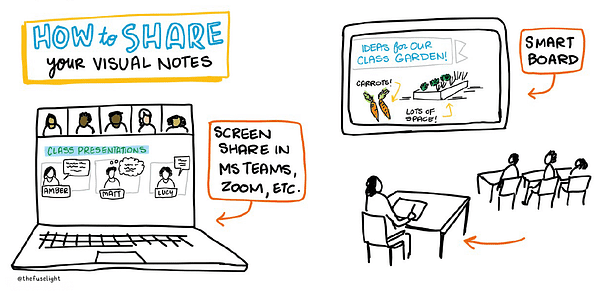 HOW to SHARE
your VISUAL NOTES
CLASS PRESENTATIONS
AMBER
MATT
LUCY
@thefuselight
SCREEN
SHARE IN
MS TEAMS,
ZOOM, ETC.
IDEAS for OUR
CLASS GARDEN!
CARROTS!
LOTS OF
SPACE!
SMART
BOARD